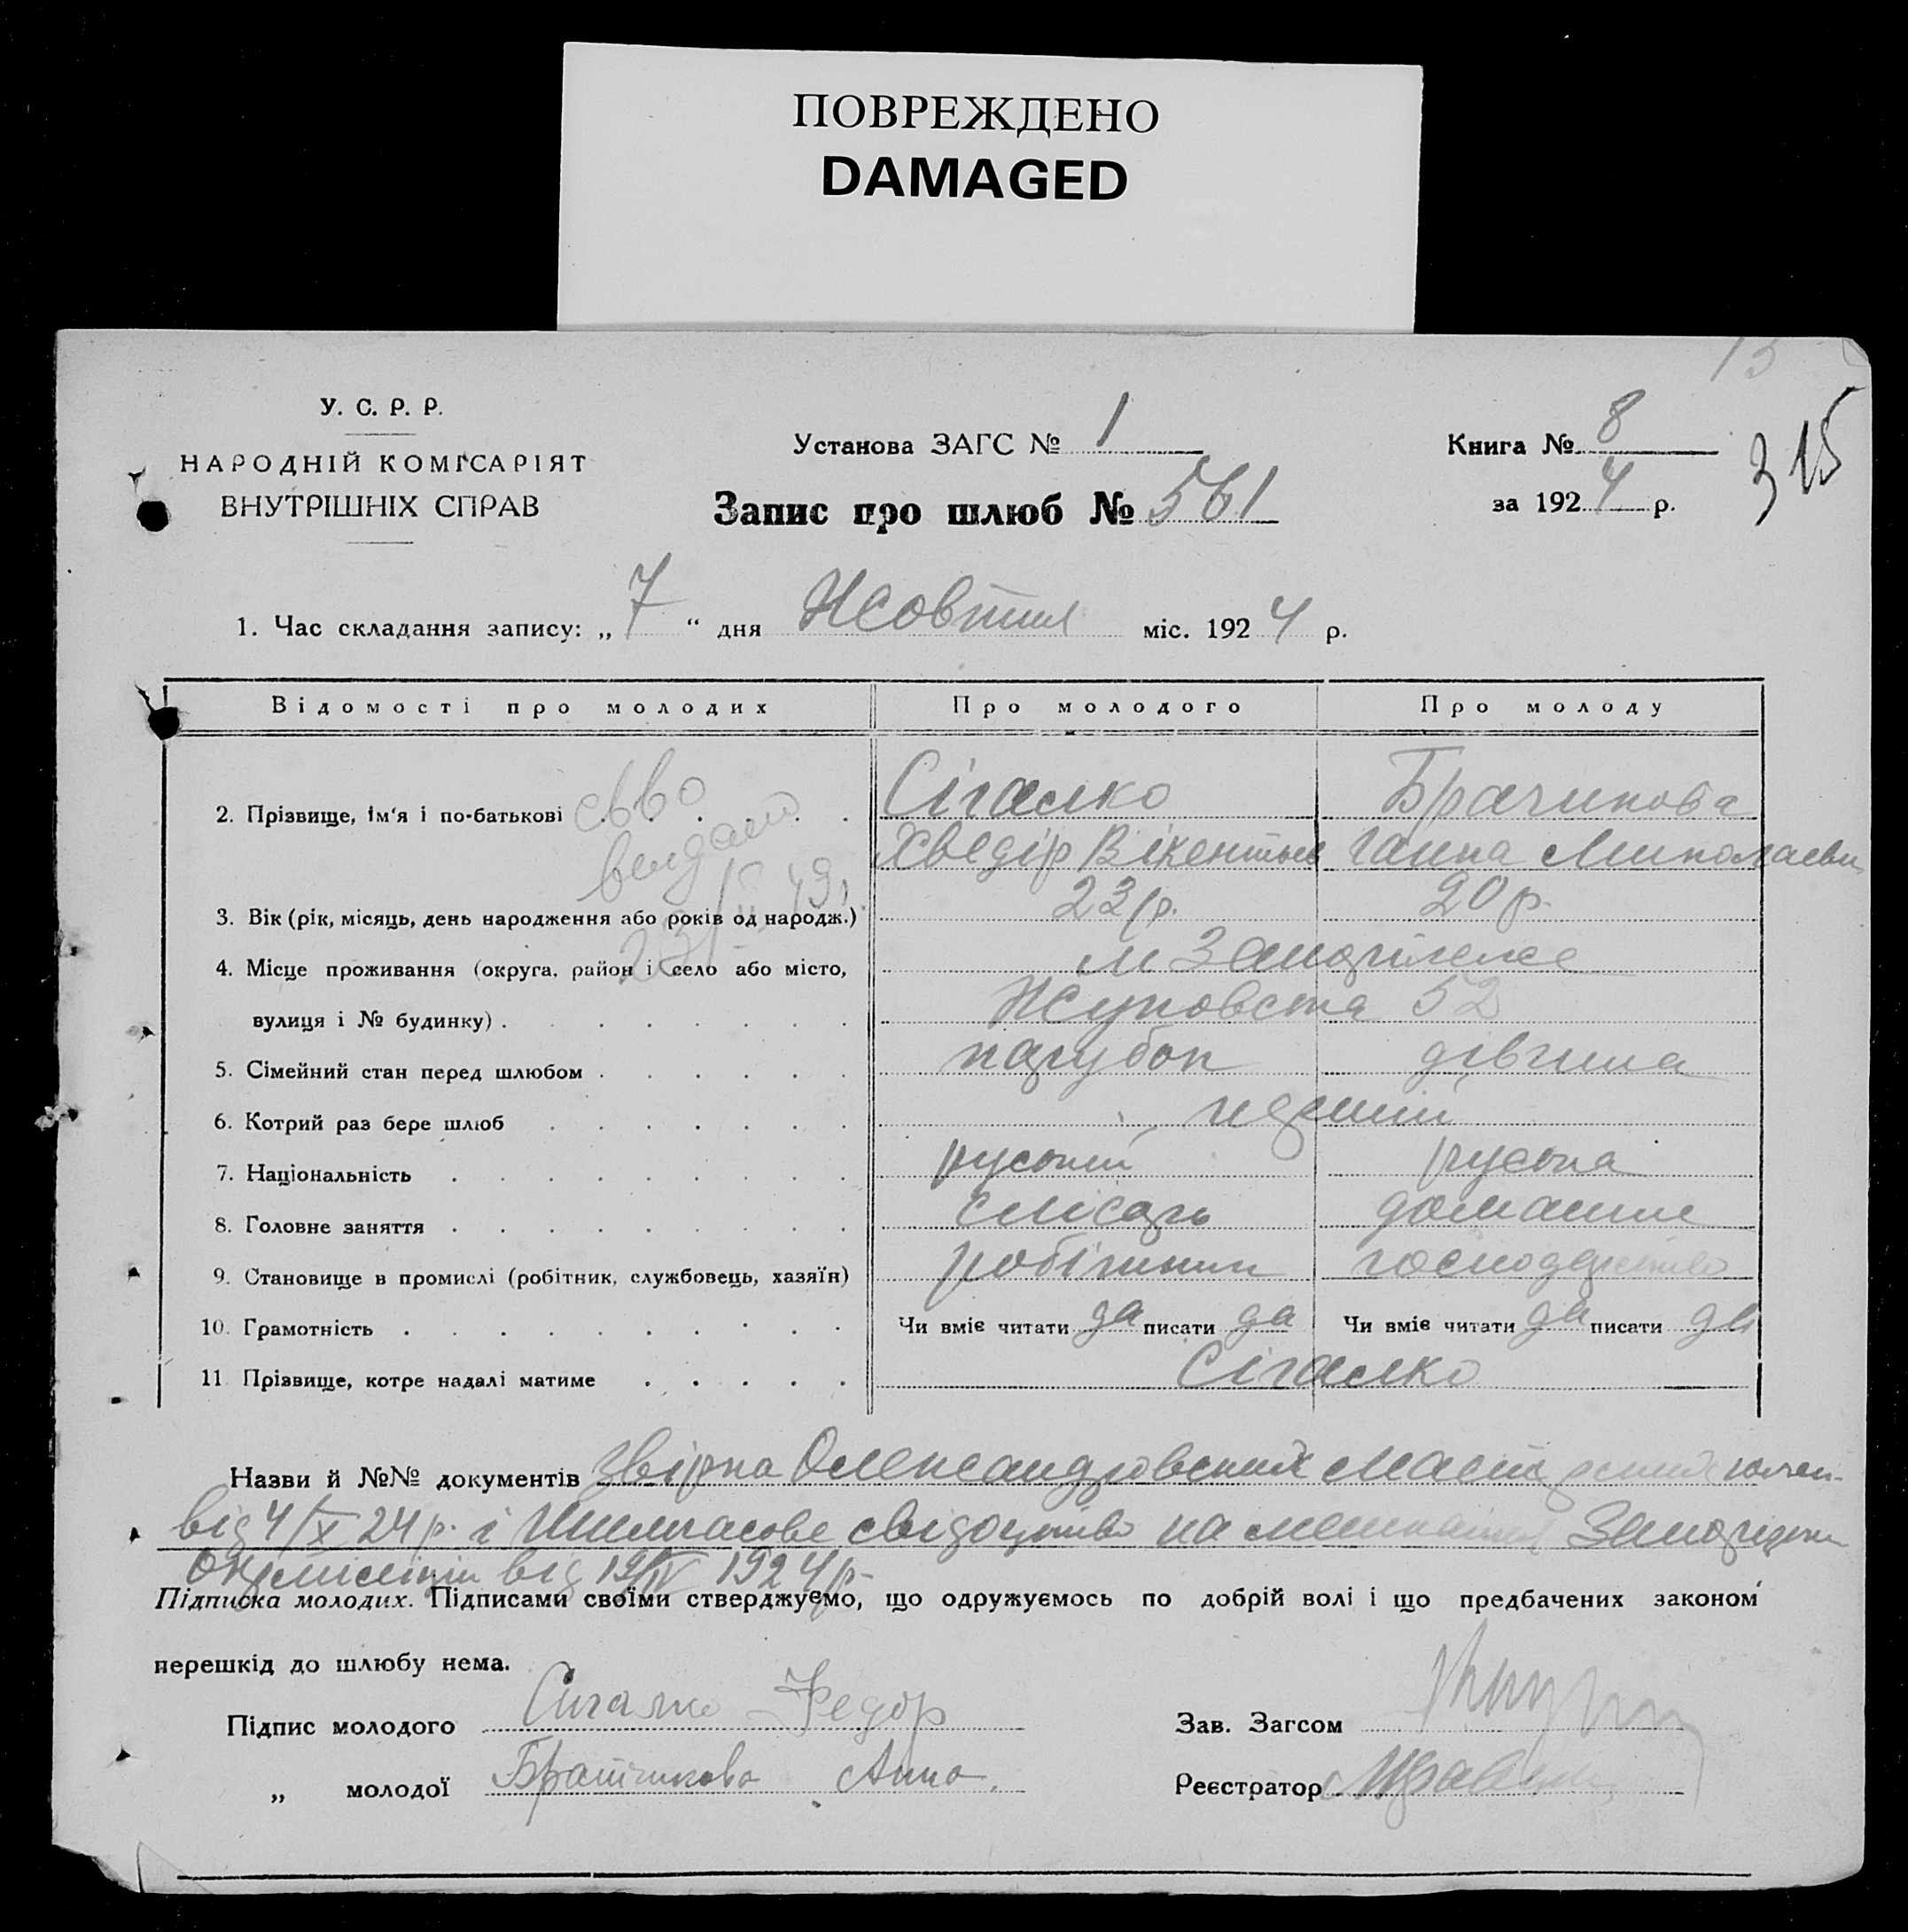 ПОВРЕЖДЕНО
DAMAGED
13
У. С. Р. Р.
НАРОДНІЙ КОМІСАРІЯТ
ВНУТРІШНІХ СПРАВ
Установа ЗАГС № 1
Запис про шлюб № 561
Книга № 8
за 1924 р.
315
1. Час складання запису: „7“ дня Жовтня міс. 1924 р.
Відомості про молодих Про молодого Про молоду
2. Прізвище, ім'я і по-батькові Сігалко Брачикова
Хведір Вікентьев Ганна Миколаевн
3. Вік (рік, місяць, день народження або років од народж.) 23 р. 20 р.
4. Місце проживання (округа, район і село або місто, м Запоріжже
вулиця і № будинку) Жуковська 52
5. Сімейний стан перед шлюбом парубок дівчина
6. Котрий раз бере шлюб перший
7. Національність руський руська
8. Головне заняття слюсарь домашне
9. Становище в промислі (робітник, службовець, хазяїн) робітник господарство
10. Грамотність Чи вміє читати да писати да Чи вміє читати да писати да
11 Прізвище, котре надалі матиме Сігалко
св-во
видано
Назви й №№ документів Звірка Олександровських
від 4/X 24 р. і свідоцтво на Запоріжж
від 19/IV 1924 р.
Підписка молодих. Підписами своїми стверджуємо, що одружуємось по добрій волі і що предбачених законом
перешкід до шлюбу нема.
Підпис молодого Сигалко Федор
„ молодої Братчикова Анна.
Зав. Загсом
Реєстратор